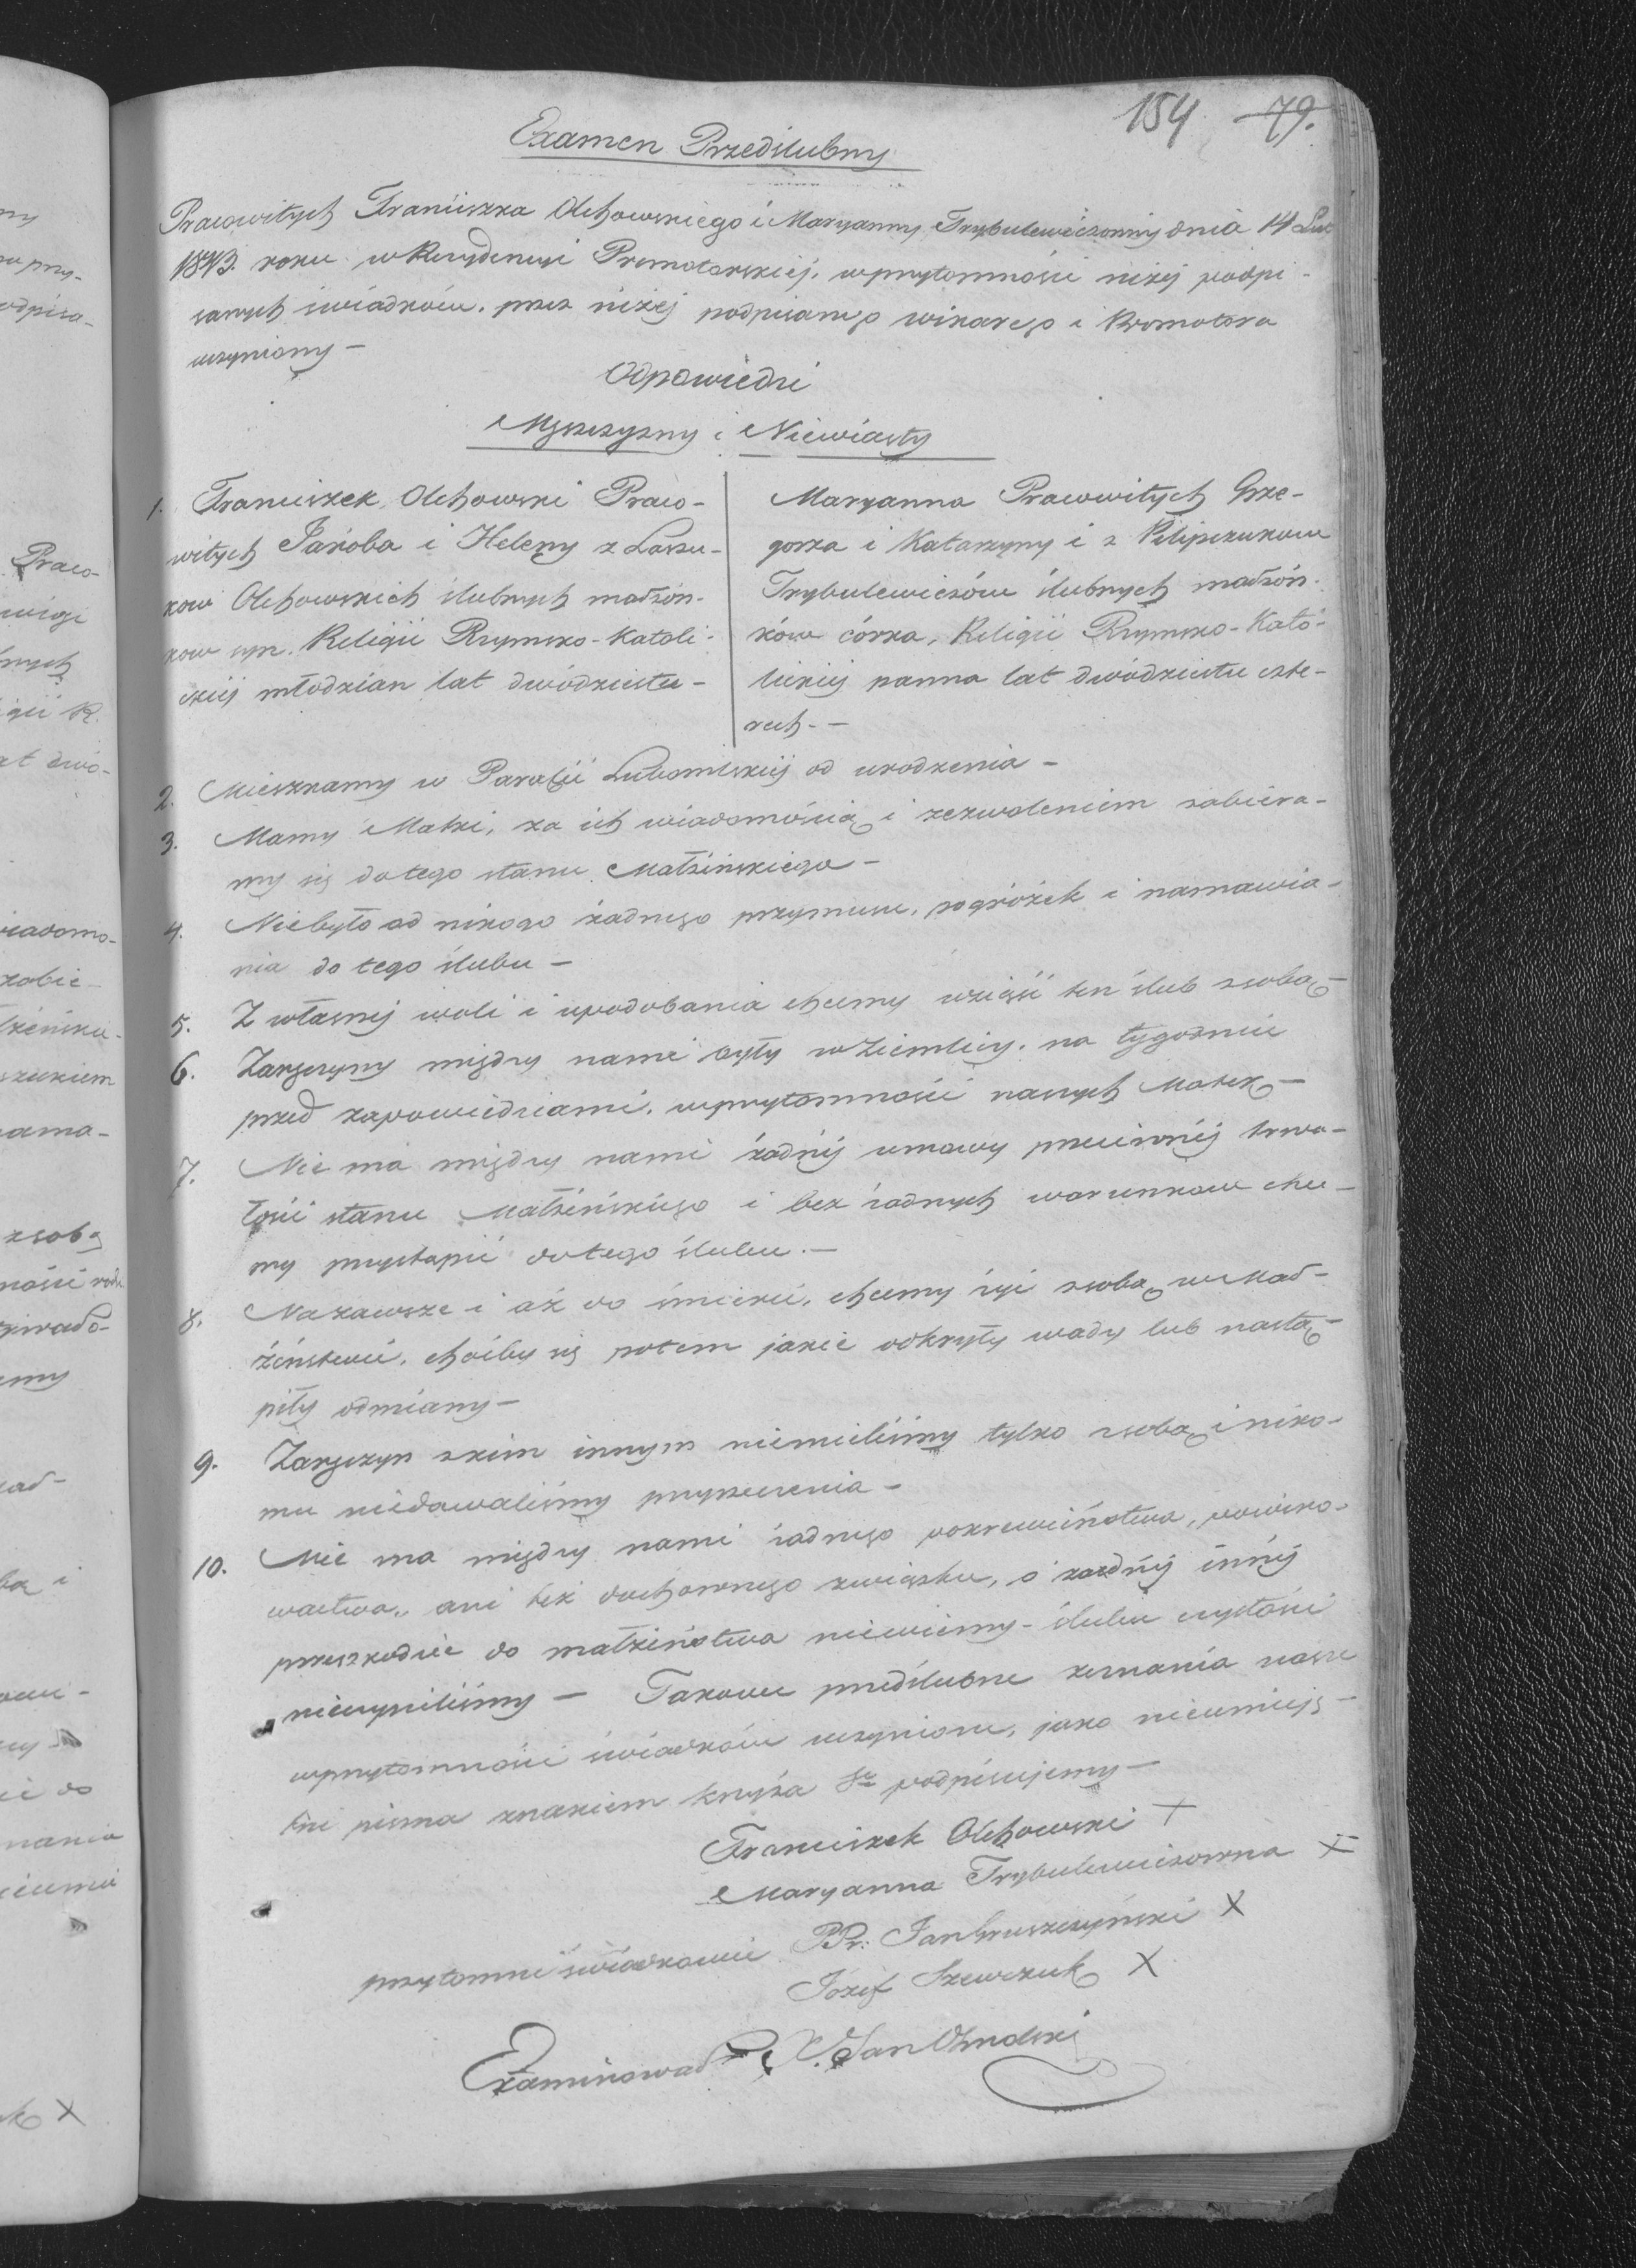 154 79.
Examen Przedślubny
Pracowitych Franciszka Olchowskiego i Maryanny Trybulewiczowny dnia 14 Lut
1843. roku w Rezydencyi Promotorskiéj, w przytomności niżéj podpi-
sanych świadków, przez niżéj podpisanego wikarego i Promotora
uczyniony —
Odpowiedzi
Męszczyzny i Niewiasty
1. Franciszek Olchowski Praco-
witych Jakóba i Heleny z Laszu-
kow Olchowskich ślubnych małżon-
kow syn. Religii Rzymsko-Katoli-
ckiéj młodzian lat dwódziestu —
Maryanna Pracowitych Grze-
gorza i Katarzyny i z Pilipczukow
Trybulewiczów ślubnych małżon-
ków córka, Religii Rzymsko-Kato-
lickiéj panna lat dwódziestu czte-
rech. —
2. Mieszkamy w Parafii Lubomlskiéj od urodzenia —
3. Mamy Matki, za ich wiadomością i zezwoleniem zabiera-
my się do tego stanu Małżeńskiego —
4. Niebyło od nikogo żadnego przymusu, pogróżek i namawia-
nia do tego ślubu —
5. Z własnéj woli i upodobania chcemy wziąść ten ślub z sobą —
6. Zaręczyny między nami były w Ziemlicy. na tygodniu
przed zapowiedziami, w przytomności naszych Matek —
7. Nie ma między nami żadnéj umowy przeciwnéj trwa-
łości stanu Małżeńskiego i bez żadnych warunkow chce-
my przystąpić do tego ślubu. —
8. Na zawsze i aż do śmierci, chcemy żyć z sobą w Mał-
żeństwie, choćby się potem jakie odkryły wady lub nastą-
piły odmiany —
9. Zaręczyn z kim innym niemieliśmy tylko z sobą i niko-
mu niedawaliśmy przyrzeczenia —
10. Nie ma między nami żadnego pokrewieństwa, powino-
wactwa, ani też duchownego związku, o żadnéj innéj
przeszkodzie do małżeństwa niewiemy — ślubu czystości
nieczyniliśmy — Takowe przedślubne zeznania nasze
w przytomności świadków uczynione, jako nieumieję-
tni pisma znakiem krzyża Sgo podpisujemy —
Franciszek Olchowski +
Maryanna Trybulewiczowna +
przytomni świadkowie PPr: Jan Gruszczyński X
Józef Szewczuk X
Examinował X. Jan